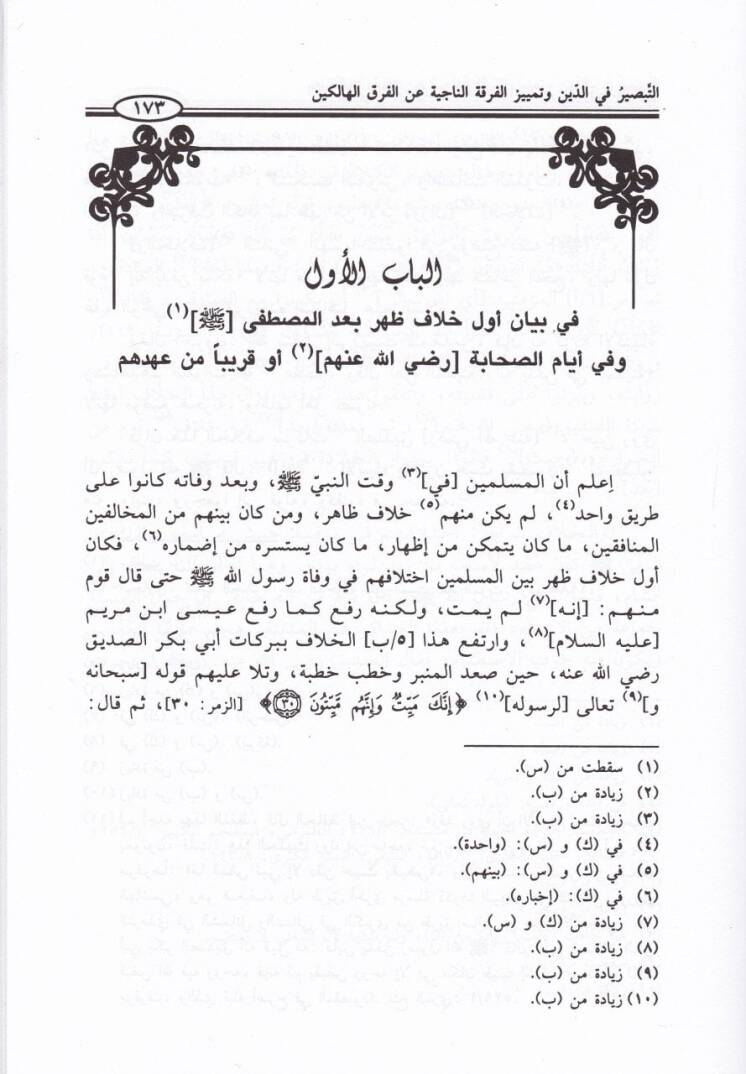 التّبصيرُ في الدّين وتمييز الفرقة الناجية عن الفرق الهالكين
١٧٣
الباب الأول
في بيان أول خلاف ظهر بعد المصطفى [ﷺ](١)
وفي أيام الصحابة [رضي الله عنهم](٢) أو قريباً من عهدهم
اِعلم أن المسلمين [في](٣) وقت النبيّ ﷺ، وبعد وفاته كانوا على
طريق واحد(٤)، لم يكن منهم(٥) خلاف ظاهر، ومن كان بينهم من المخالفين
المنافقين، ما كان يتمكن من إظهار، ما كان يستسره من إضماره(٦)، فكان
أول خلاف ظهر بين المسلمين اختلافهم في وفاة رسول الله ﷺ حتى قال قوم
منهم: [إنه](٧) لم يمت، ولكنه رفع كما رفع عيسى ابن مريم
[عليه السلام](٨)، وارتفع هذا [٥/ب] الخلاف ببركات أبي بكر الصديق
رضي الله عنه، حين صعد المنبر وخطب خطبة، وتلا عليهم قوله [سبحانه
و](٩) تعالى [لرسوله](١٠) ﴿إِنَّكَ مَيِّتٌ وَإِنَّهُم مَّيِّتُونَ ٣٠﴾ [الزمر: ٣٠]، ثم قال:
(١) سقطت من (س).
(٢) زيادة من (ب).
(٣) زيادة من (ب).
(٤) في (ك) و (س): (واحدة).
(٥) في (ك) و (س): (بينهم).
(٦) في (ك): (إخباره).
(٧) زيادة من (ك) و (س).
(٨) زيادة من (ب).
(٩) زيادة من (ب).
(١٠) زيادة من (ب).